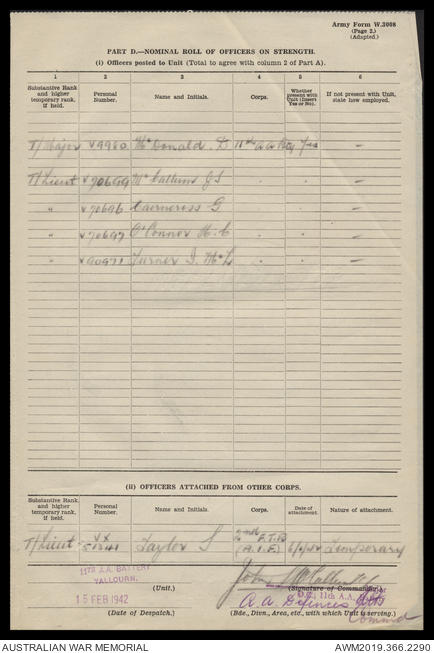 Army Form W.3008
(Page 2.)
(Adapted.)
PART D.—NOMINAL ROLL OF OFFICERS ON STRENGTH.
(i) Officers posted to Unit (Total to agree with column 2 of Part A).
1 2 3 4 5 6
Substantive Rank and higher temporary rank, if held. Personal Number. Name and Initials. Corps. Whether present with Unit (Insert Yes or No). If not present with Unit, state how employed.
T/Major V9980 McDonald. D 11th A A Bty Yes —
T/Lieut V70699 McCallum J S . . —
" V70696 Cairncross G . . —
" V70697 O'Connor H. C . . —
" V90971 Turner I. McL . . —
(ii) OFFICERS ATTACHED FROM OTHER CORPS.
Substantive Rank and higher temporary rank, if held. Personal Number. Name and Initials. Corps. Date of attachment. Nature of attachment.
T/Lieut VX Taylor S 2nd F.T.B (A.I.F.) Temporary
11TH A.A. BATTERY
YALLOURN.
(Unit.)
John
(Signature of Commander)
11th A.A.
15 FEB 1942
A.A. Defences
(Date of Despatch.)
(Bde., Divn., Area, etc., with which Unit is serving.)
AUSTRALIAN WAR MEMORIAL
AWM2019.366.2290